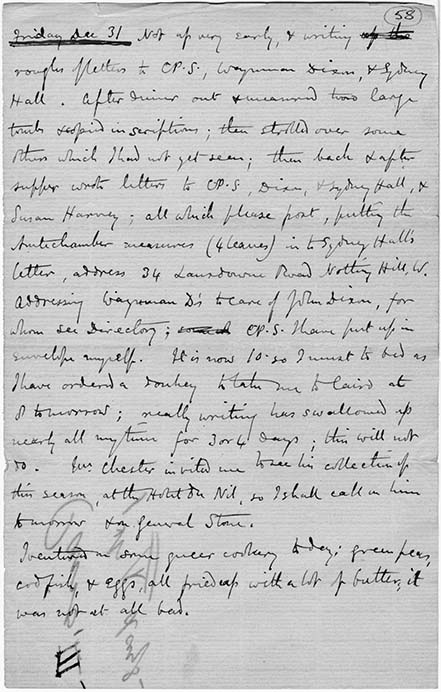 58
Friday Dec 31 Not up very early, & writing up the
roughs of letters to C.P.S., Waynman Dixon, & Sydney
Hall. After dinner out & measured two large
tombs & copied inscriptions; then strolled over some
others which I had not yet seen; then back & after
supper wrote letters to C.P.S, Dixon, & Sydney Hall, &
Susan Harvey; all which please post, putting the
Antechamber measures (4 leaves) in to Sydney Hall's
letter, address 34 Lansdowne Road Notting Hill, W.
Addressing Waynman D's to care of John Dixon, for
whom see Directory; C.P.S. I have put up in
envelope myself. It is now 10.50 I must to bed as
I have ordered a donkey to take me to Cairo at
8 tomorrow; really writing has swallowed up
nearly all my time for 3 or 4 days; this will not
do. Chester invited me to see his collection of
this season, at the Hotel du Nil, so I shall call on him
tomorrow & on General Stone.
I ventured on some queer cookery to day; green peas,
codfish, & eggs, all fried up with a lot of butter; it
was not at all bad.